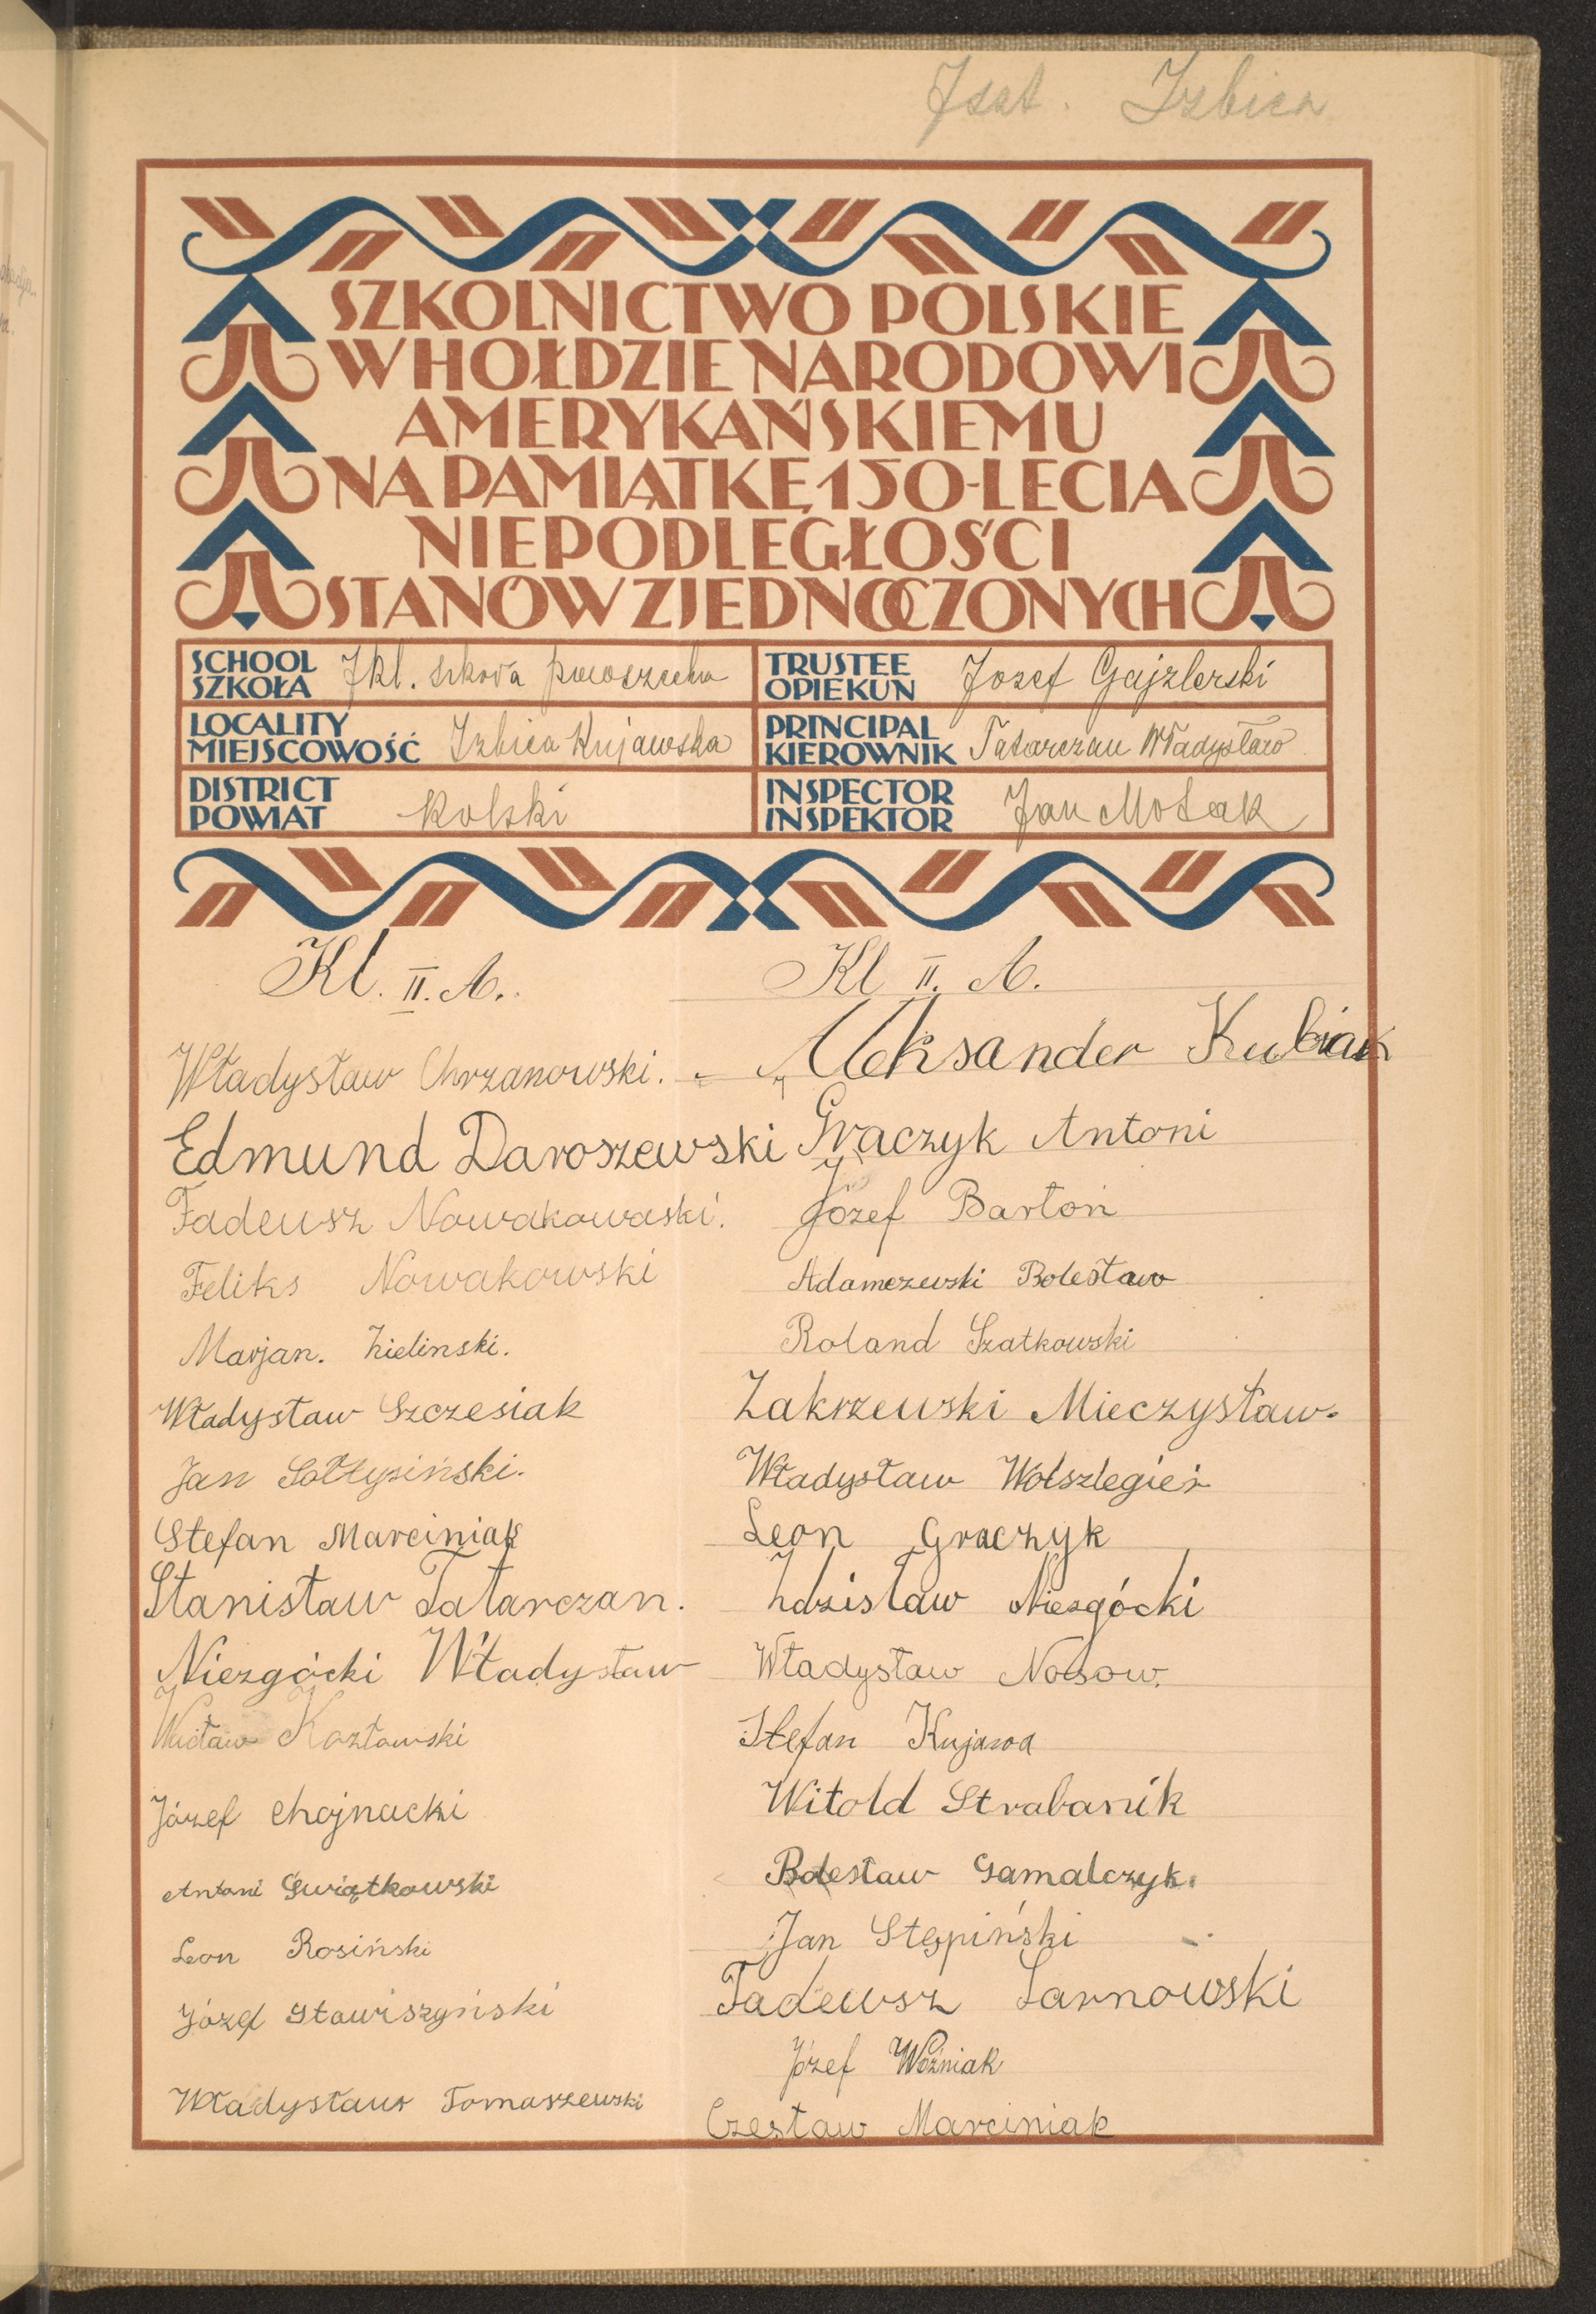 Izbica
SZKOLNICTWO POLSKIE
W HOŁDZIE NARODOWI
AMERYKAŃSKIEMU
NA PAMIĄTKĘ 150-LECIA
NIEPODLEGŁOŚCI
STANÓW ZJEDNOCZONYCH
SCHOOL
SZKOŁA 7kl. szkoła
LOCALITY
MIEJSCOWOŚĆ Izbica Kujawska
DISTRICT
POWIAT Kolski
TRUSTEE
OPIEKUN Jozef Gajzlerski
PRINCIPAL
KIEROWNIK Tatarczan Władysław
INSPECTOR
INSPEKTOR Jan
Kl. II. A.
Władysław Chrzanowski.
Edmund Daroszewski
Tadeusz Nowakowaski.
Feliks Nowakowski
Marjan. Zielinski.
Władysław Szczesiak
Jan Sołtysiński.
Stefan Marciniak
Stanisław Tatarczan.
Niezgócki Władysław
Wacław Kozłowski
Józef Chojnacki
Antoni Świątkowski
Leon Rosiński
Józef Stawiszyński
Władysław Tomaszewski
Kl II. A.
Aleksander Kubiak
Graczyk Antoni
Józef Bartoń
Adamczewski Bolesław
Roland Szatkowski
Zakrzewski Mieczysław.
Władysław Wolszlegier
Leon Graczyk
Zdzisław Niezgócki
Władysław Nosow.
Stefan Kujawa
Witold Strabanik
Bolesław Gamalczyk.
Jan Stępiński
Tadeusz Sarnowski
Józef Woźniak
Czesław Marciniak